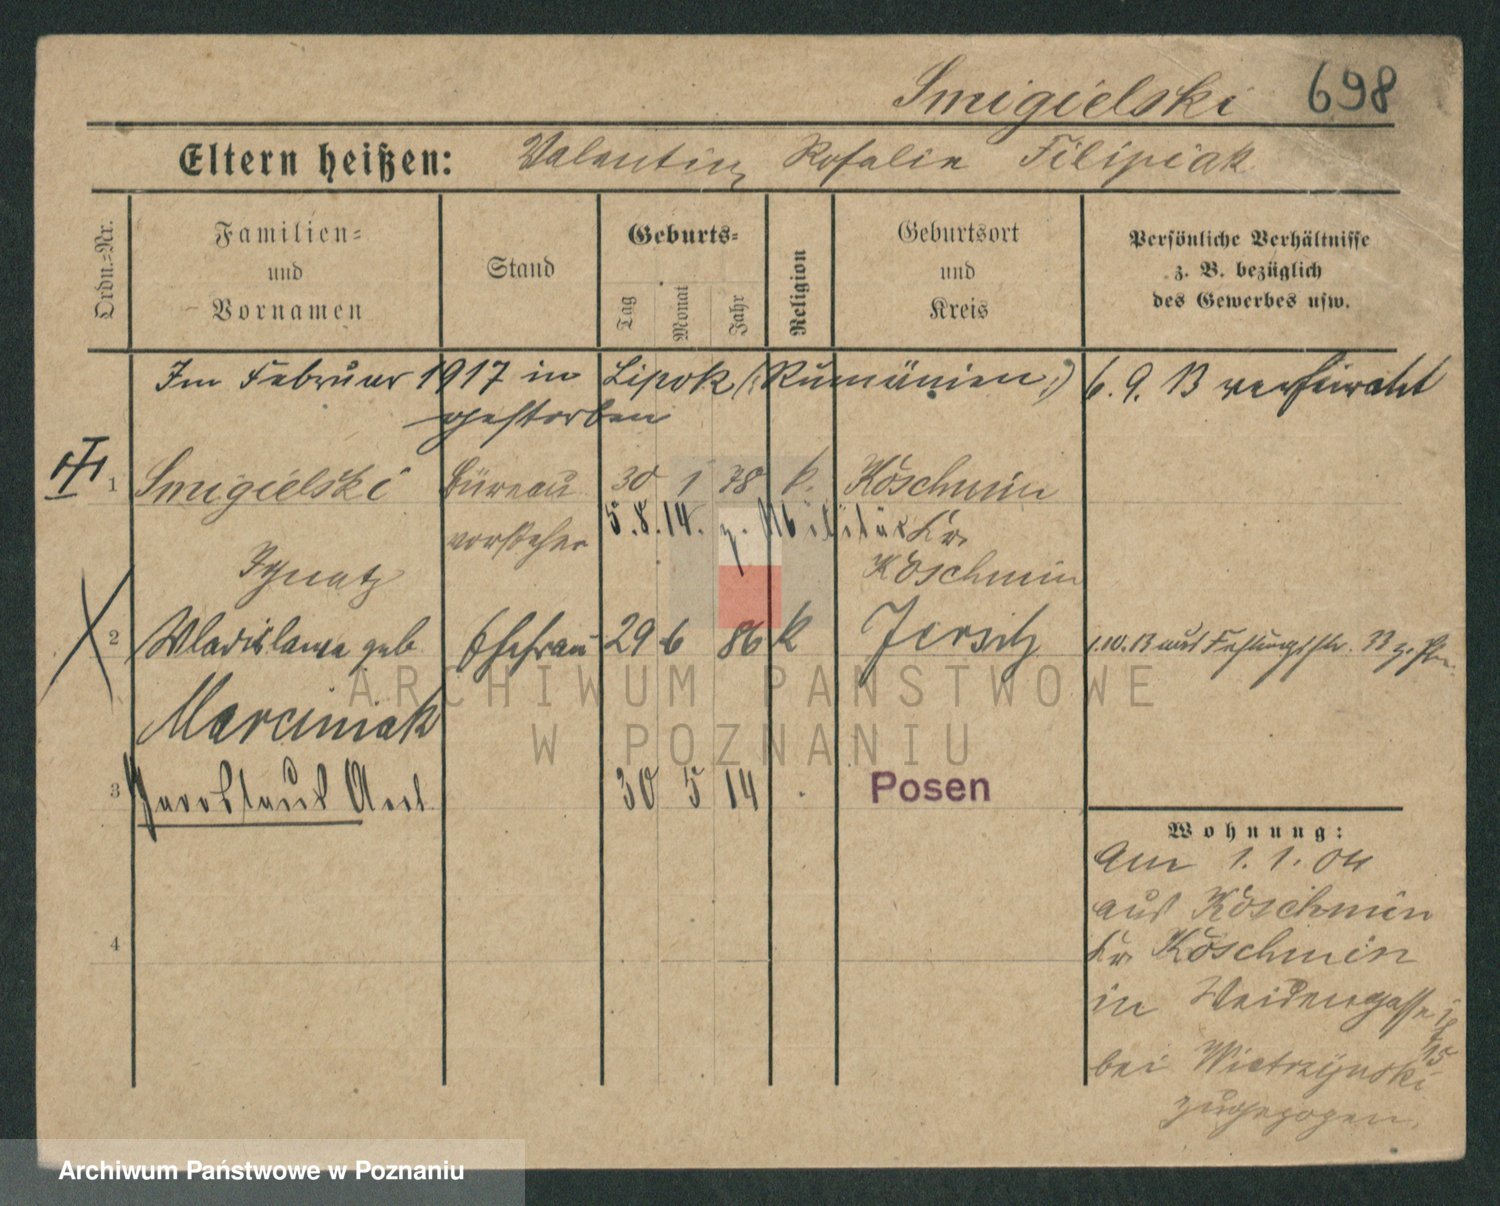 Smigielski 698
Eltern heißen: Valentin, Rosalie Filipiak
Ordn.=Nr.
Familien=
und
Vornamen
Stand
Geburts=
Tag Monat Jahr
Religion
Geburtsort
und
Kreis
Persönliche Verhältnisse
z. B. bezüglich
des Gewerbes usw.
Im Februar 1917 in Lipok (: Rumänien :) 6. 9. 13 verheiratet
gestorben
1 Smigielski Büreau 30 1 78 k. Köschmin
vorsteher 5. 8. 14. z. Militär Kr.
Ignatz Köschmin
2 Wladislawa geb. Ehefrau 29 6 86 k Jersitz 1.10.13 aus
Marciniak
3 30 5 14 Posen
4
Wohnung:
Am 1. 1. 04
aus Köschmin
Kr. Köschmin
in Weidengasse
15
bei Wietrzynski
zugezogen.
ARCHIWUM PAŃSTWOWE
W POZNANIU
Archiwum Państwowe w Poznaniu